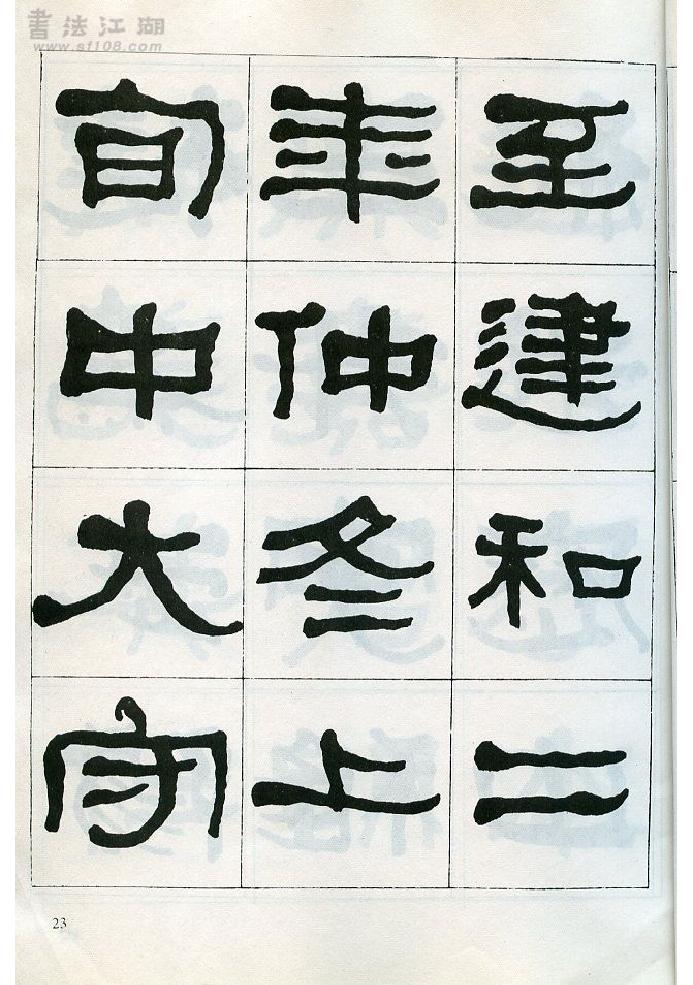 書法江湖
www.sf108.com
至建和二
年仲冬上
旬中大守
23